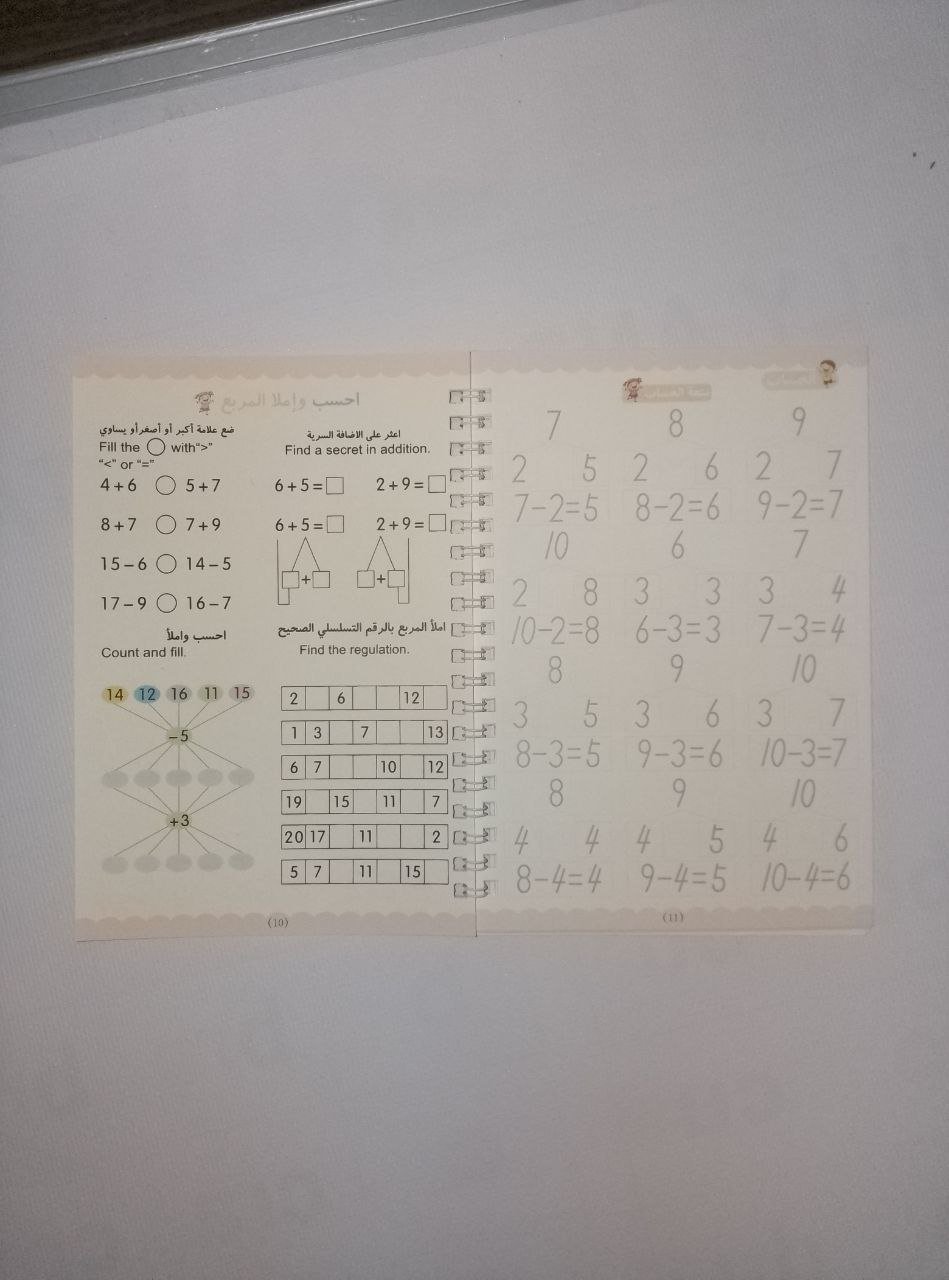 احسب وإملا المربع
ضع علامة أكبر أو أصغر أو يساوي
Fill the ◯ with“>”
“<” or “=”
4+6 ◯ 5+7
8+7 ◯ 7+9
15−6 ◯ 14−5
17−9 ◯ 16−7
احسب واملأ
Count and fill.
14 12 16 11 15
−5
+3
اعثر على الاضافة السرية
Find a secret in addition.
6+5=□ 2+9=□
6+5=□ 2+9=□
□+□ □+□
املأ المربع بالرقم التسلسلي الصحيح
Find the regulation.
2 6 12
1 3 7 13
6 7 10 12
19 15 11 7
20 17 11 2
5 7 11 15
(10)
7 8 9
2 5 2 6 2 7
7−2=5 8−2=6 9−2=7
10 6 7
2 8 3 3 3 4
10−2=8 6−3=3 7−3=4
8 9 10
3 5 3 6 3 7
8−3=5 9−3=6 10−3=7
8 9 10
4 4 4 5 4 6
8−4=4 9−4=5 10−4=6
(11)